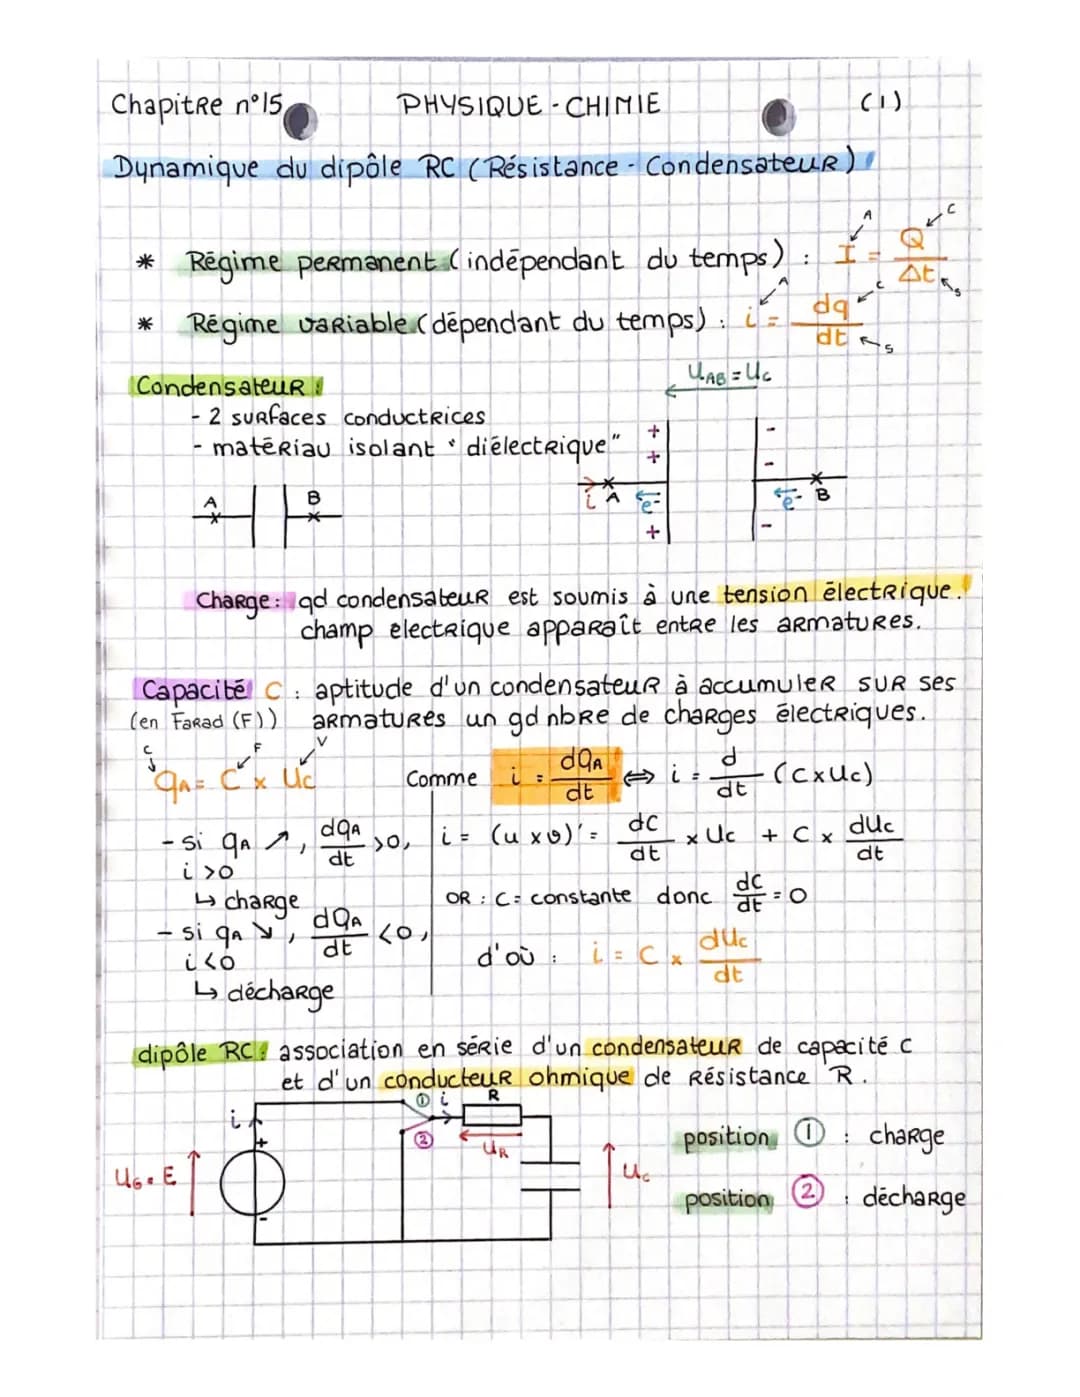 Chapitre n°15 PHYSIQUE - CHIMIE (1)
Dynamique du dipôle RC (Résistance - Condensateur)
* Régime permanent (indépendant du temps) : I = Q/Δt
A C s
* Régime variable (dépendant du temps) : i = dq/dt
A C s
Condensateur :
- 2 surfaces conductrices
- matériau isolant "diélectrique"
UAB = Uc
A B
i A e- + + + - - - e- B
Charge : qd condensateur est soumis à une tension électrique.
champ electrique apparaît entre les armatures.
Capacité C : aptitude d'un condensateur à accumuler sur ses
(en Farad (F)) armatures un gd nbre de charges électriques.
C F V
qA = C x Uc
- si qA ↗, dqA/dt >0,
i >0
↳ charge
- si qA ↘, dqA/dt <0,
i <0
↳ décharge
Comme i = dqA/dt ⇔ i = d/dt (C x Uc)
i = (u x v)' = dC/dt x Uc + C x dUc/dt
OR : C = constante donc dC/dt = 0
d'où : i = C x dUc/dt
dipôle RC : association en série d'un condensateur de capacité C
et d'un conducteur ohmique de résistance R.
i + - UG = E ① ② i R UR Uc
position ① : charge
position ② : décharge